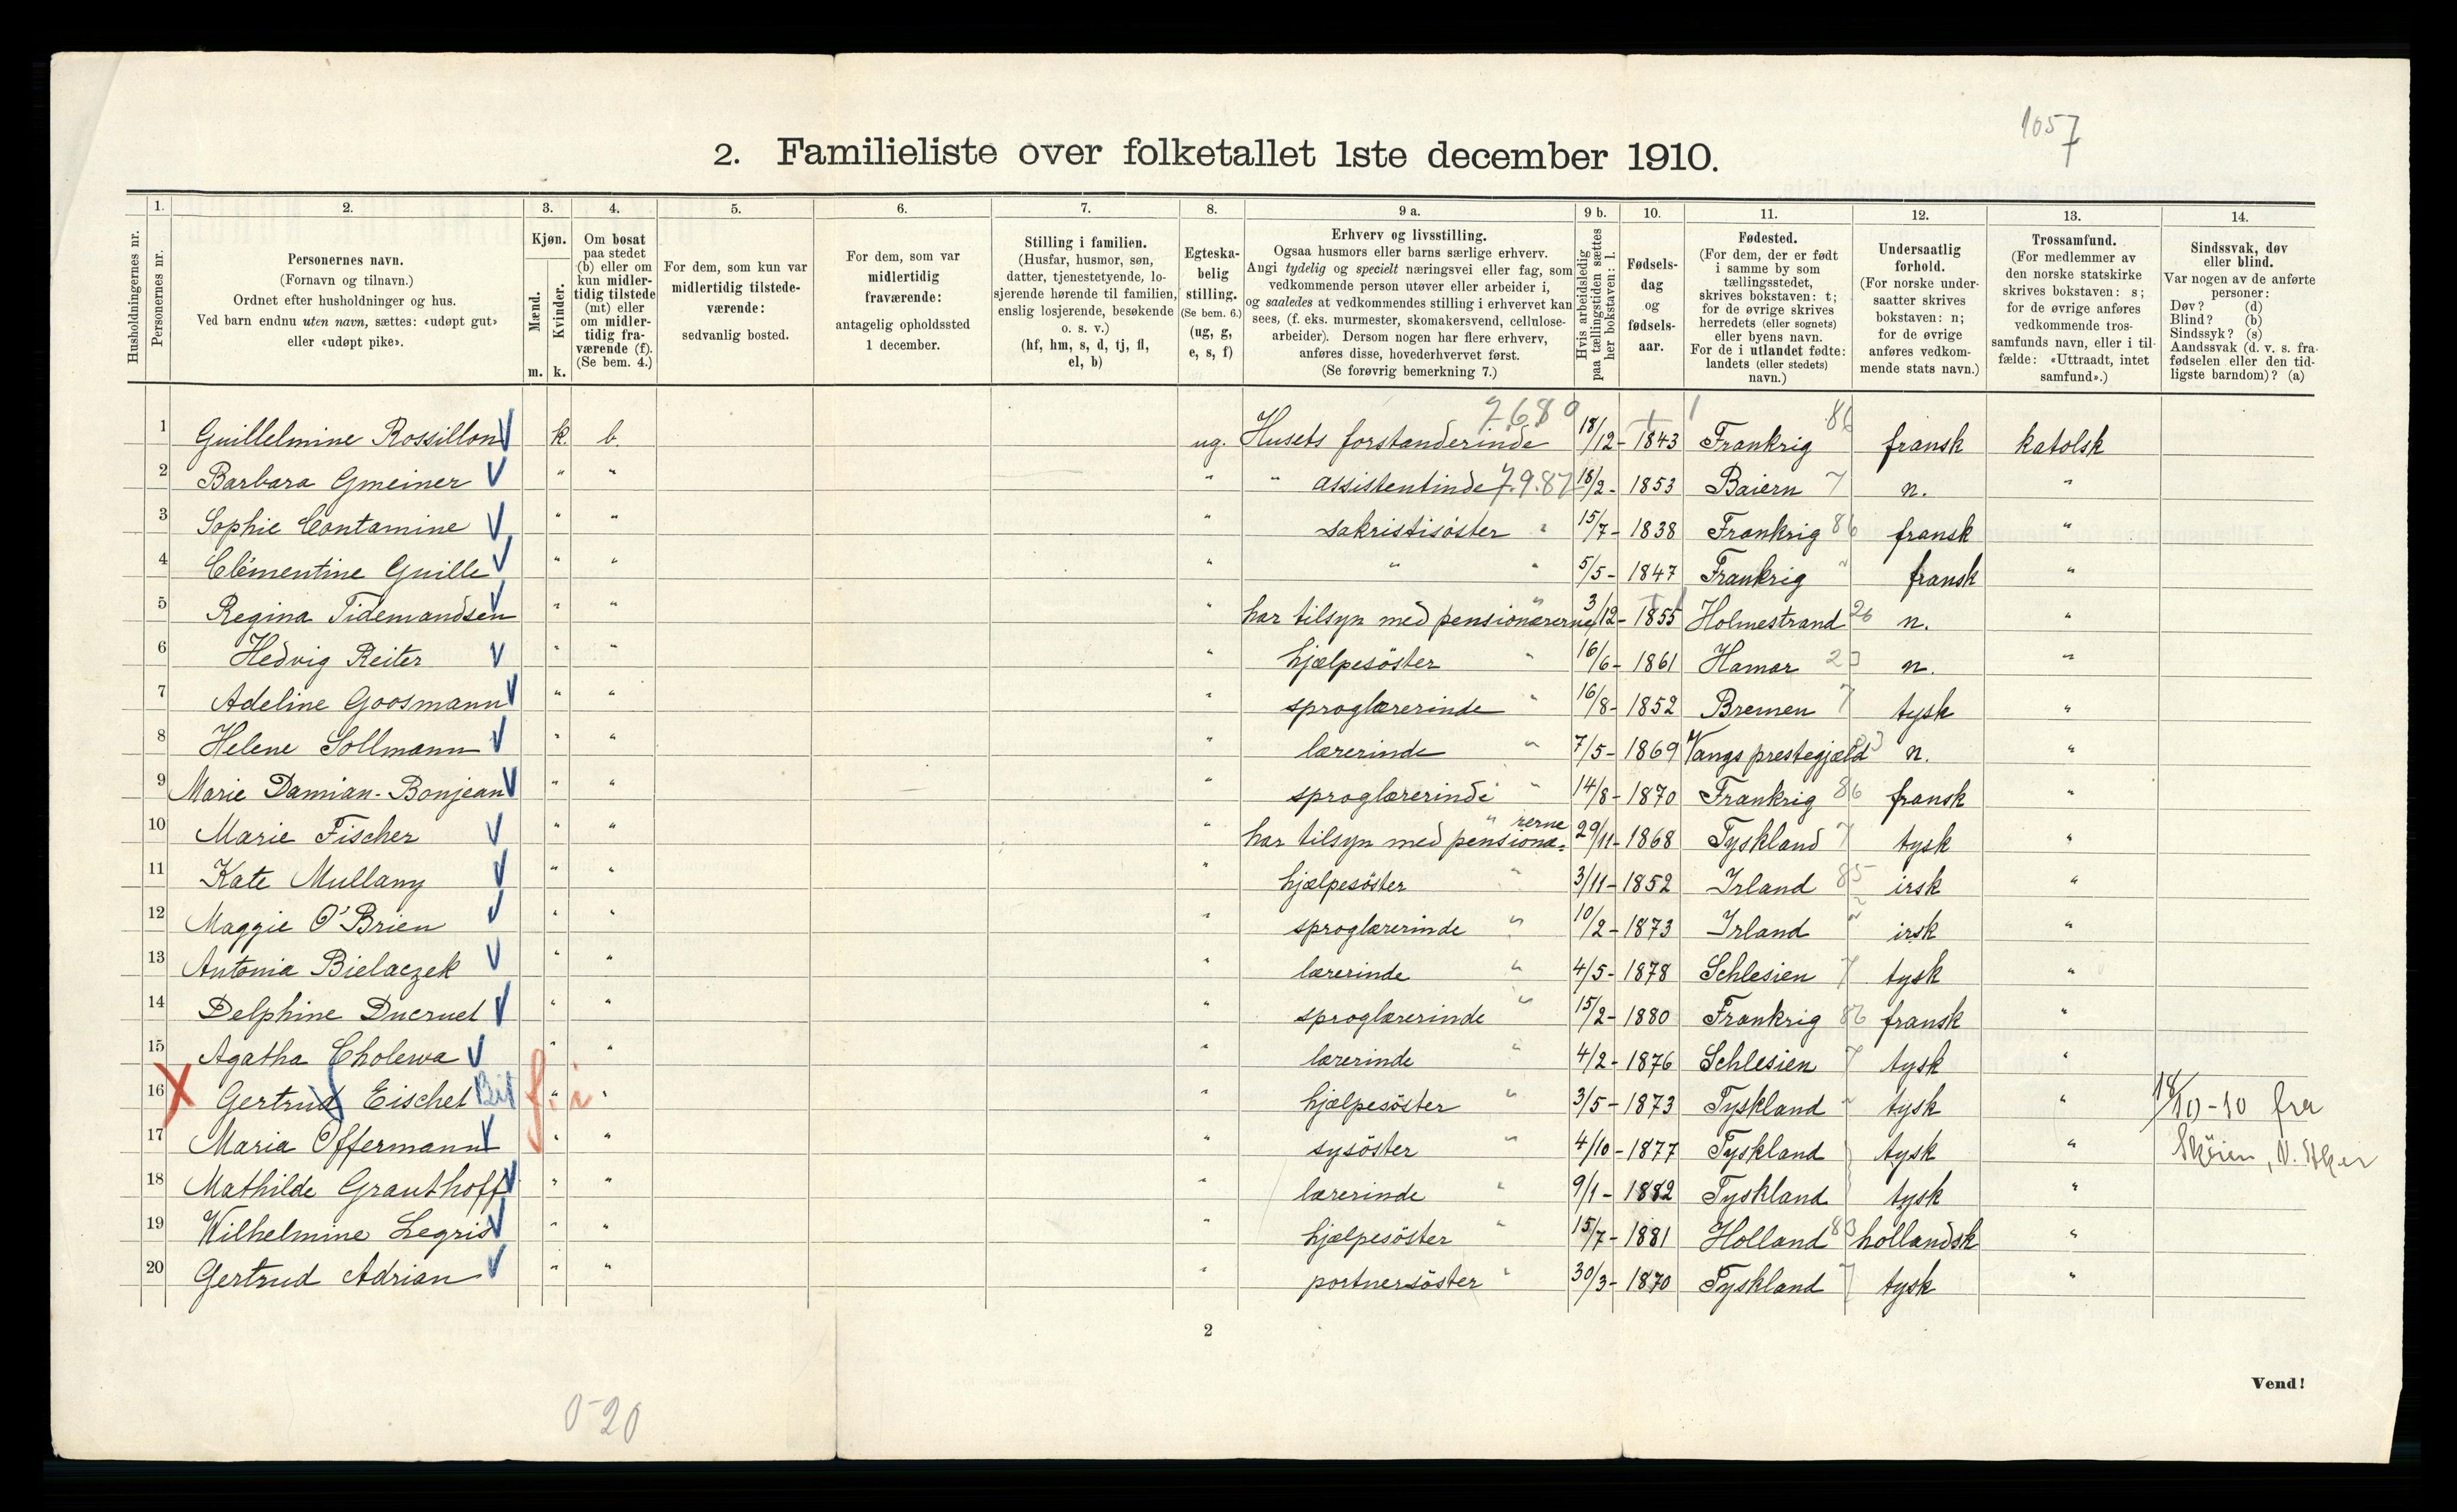 1057
2. Familieliste over folketallet 1ste december 1910.
1. 2. 3. 4. 5. 6. 7. 8. 9 a. 9 b. 10. 11. 12. 13. 14.
Husholdningernes nr.
Personernes nr.
Personernes navn.
(Fornavn og tilnavn.)
Ordnet efter husholdninger og hus.
Ved barn endnu uten navn, sættes: «udøpt gut»
eller «udøpt pike».
Kjøn.
Mænd.
Kvinder.
m. k.
Om bosat
paa stedet
(b) eller om
kun midler-
tidig tilstede
(mt) eller
om midler-
tidig fra-
værende (f).
(Se bem. 4.)
For dem, som kun var
midlertidig tilstede-
værende:
sedvanlig bosted.
For dem, som var
midlertidig
fraværende:
antagelig opholdssted
1 december.
Stilling i familien.
(Husfar, husmor, søn,
datter, tjenestetyende, lo-
sjerende hørende til familien,
enslig losjerende, besøkende
o. s. v.)
(hf, hm, s, d, tj, fl,
el, b)
Egteska-
belig
stilling.
(Se bem. 6.)
(ug, g,
e, s, f)
Erhverv og livsstilling.
Ogsaa husmors eller barns særlige erhverv.
Angi tydelig og specielt næringsvei eller fag, som
vedkommende person utøver eller arbeider i,
og saaledes at vedkommendes stilling i erhvervet kan
sees, (f. eks. murmester, skomakersvend, cellulose-
arbeider). Dersom nogen har flere erhverv,
anføres disse, hovederhvervet først.
(Se forøvrig bemerkning 7.)
Hvis arbeidsledig
paa tællingstiden sættes
her bokstaven: l.
Fødsels-
dag
og
fødsels-
aar.
Fødested.
(For dem, der er født
i samme by som
tællingsstedet,
skrives bokstaven: t;
for de øvrige skrives
herredets (eller sognets)
eller byens navn.
For de i utlandet fødte:
landets (eller stedets)
navn.)
Undersaatlig
forhold.
(For norske under-
saatter skrives
bokstaven: n;
for de øvrige
anføres vedkom-
mende stats navn.)
Trossamfund.
(For medlemmer av
den norske statskirke
skrives bokstaven: s;
for de øvrige anføres
vedkommende tros-
samfunds navn, eller i til-
fælde: «Uttraadt, intet
samfund».)
Sindssvak, døv
eller blind.
Var nogen av de anførte
personer:
Døv? (d)
Blind? (b)
Sindssyk? (s)
Aandssvak (d. v. s. fra
fødselen eller den tid-
ligste barndom)? (a)
1 Guillelmine Rossillon k. b. ug. Husets forstanderinde 18/12 - 1843 Frankrig 86 fransk katolsk
2 Barbara Gmeiner " " " " assistentinde 7.9.87 18/2 - 1853 Baiern 7 n. "
3 Sophie Contamine " " " sakristisöster " 15/7 - 1838 Frankrig 86 fransk "
4 Clémentine Guille " " " " " 5/5 - 1847 Frankrig " fransk "
5 Regina Tidemandsen " " " har tilsyn med pensionærerne " 3/12 - 1855 Holmestrand 26 n. "
6 Hedvig Reiter " " " hjælpesöster " 16/6 - 1861 Hamar 23 n. "
7 Adeline Goosmann " " " sproglærerinde " 16/8 - 1852 Bremen 7 tysk "
8 Helene Sollmann " " " lærerinde " 7/5 - 1869 Vangs prestegjæld n. "
9 Marie Damian-Bonjean " " " sproglærerinde " 14/8 - 1870 Frankrig 86 fransk "
10 Marie Fischer " " " har tilsyn med pensionærerne " 29/11 - 1868 Tyskland 7 tysk "
11 Kate Mullany " " " hjælpesöster " 3/11 - 1852 Irland 85 irsk "
12 Maggie O'Brien " " " sproglærerinde " 10/2 - 1873 Irland " irsk "
13 Antonia Bielaczek " " " lærerinde " 4/5 - 1878 Schlesien 7 tysk "
14 Delphine Ducruet " " " sproglærerinde " 15/2 - 1880 Frankrig 86 fransk "
15 Agatha Cholewa " " " lærerinde " 4/2 - 1876 Schlesien 7 tysk "
16 Gertrud Eischet " " " hjælpesöster " 3/5 - 1873 Tyskland " tysk " 18/10-10 fra
17 Maria Offermann " " " sysöster " 4/10 - 1877 Tyskland tysk " Sköien, V. Aker
18 Mathilde Grauthoff " " " lærerinde " 9/1 - 1882 Tyskland tysk "
19 Wilhelmine Legris " " " hjælpesöster " 15/7 - 1881 Holland 83 hollandsk "
20 Gertrud Adrian " " " portnersöster " 30/3 - 1870 Tyskland 7 tysk "
2
Vend!
0-20